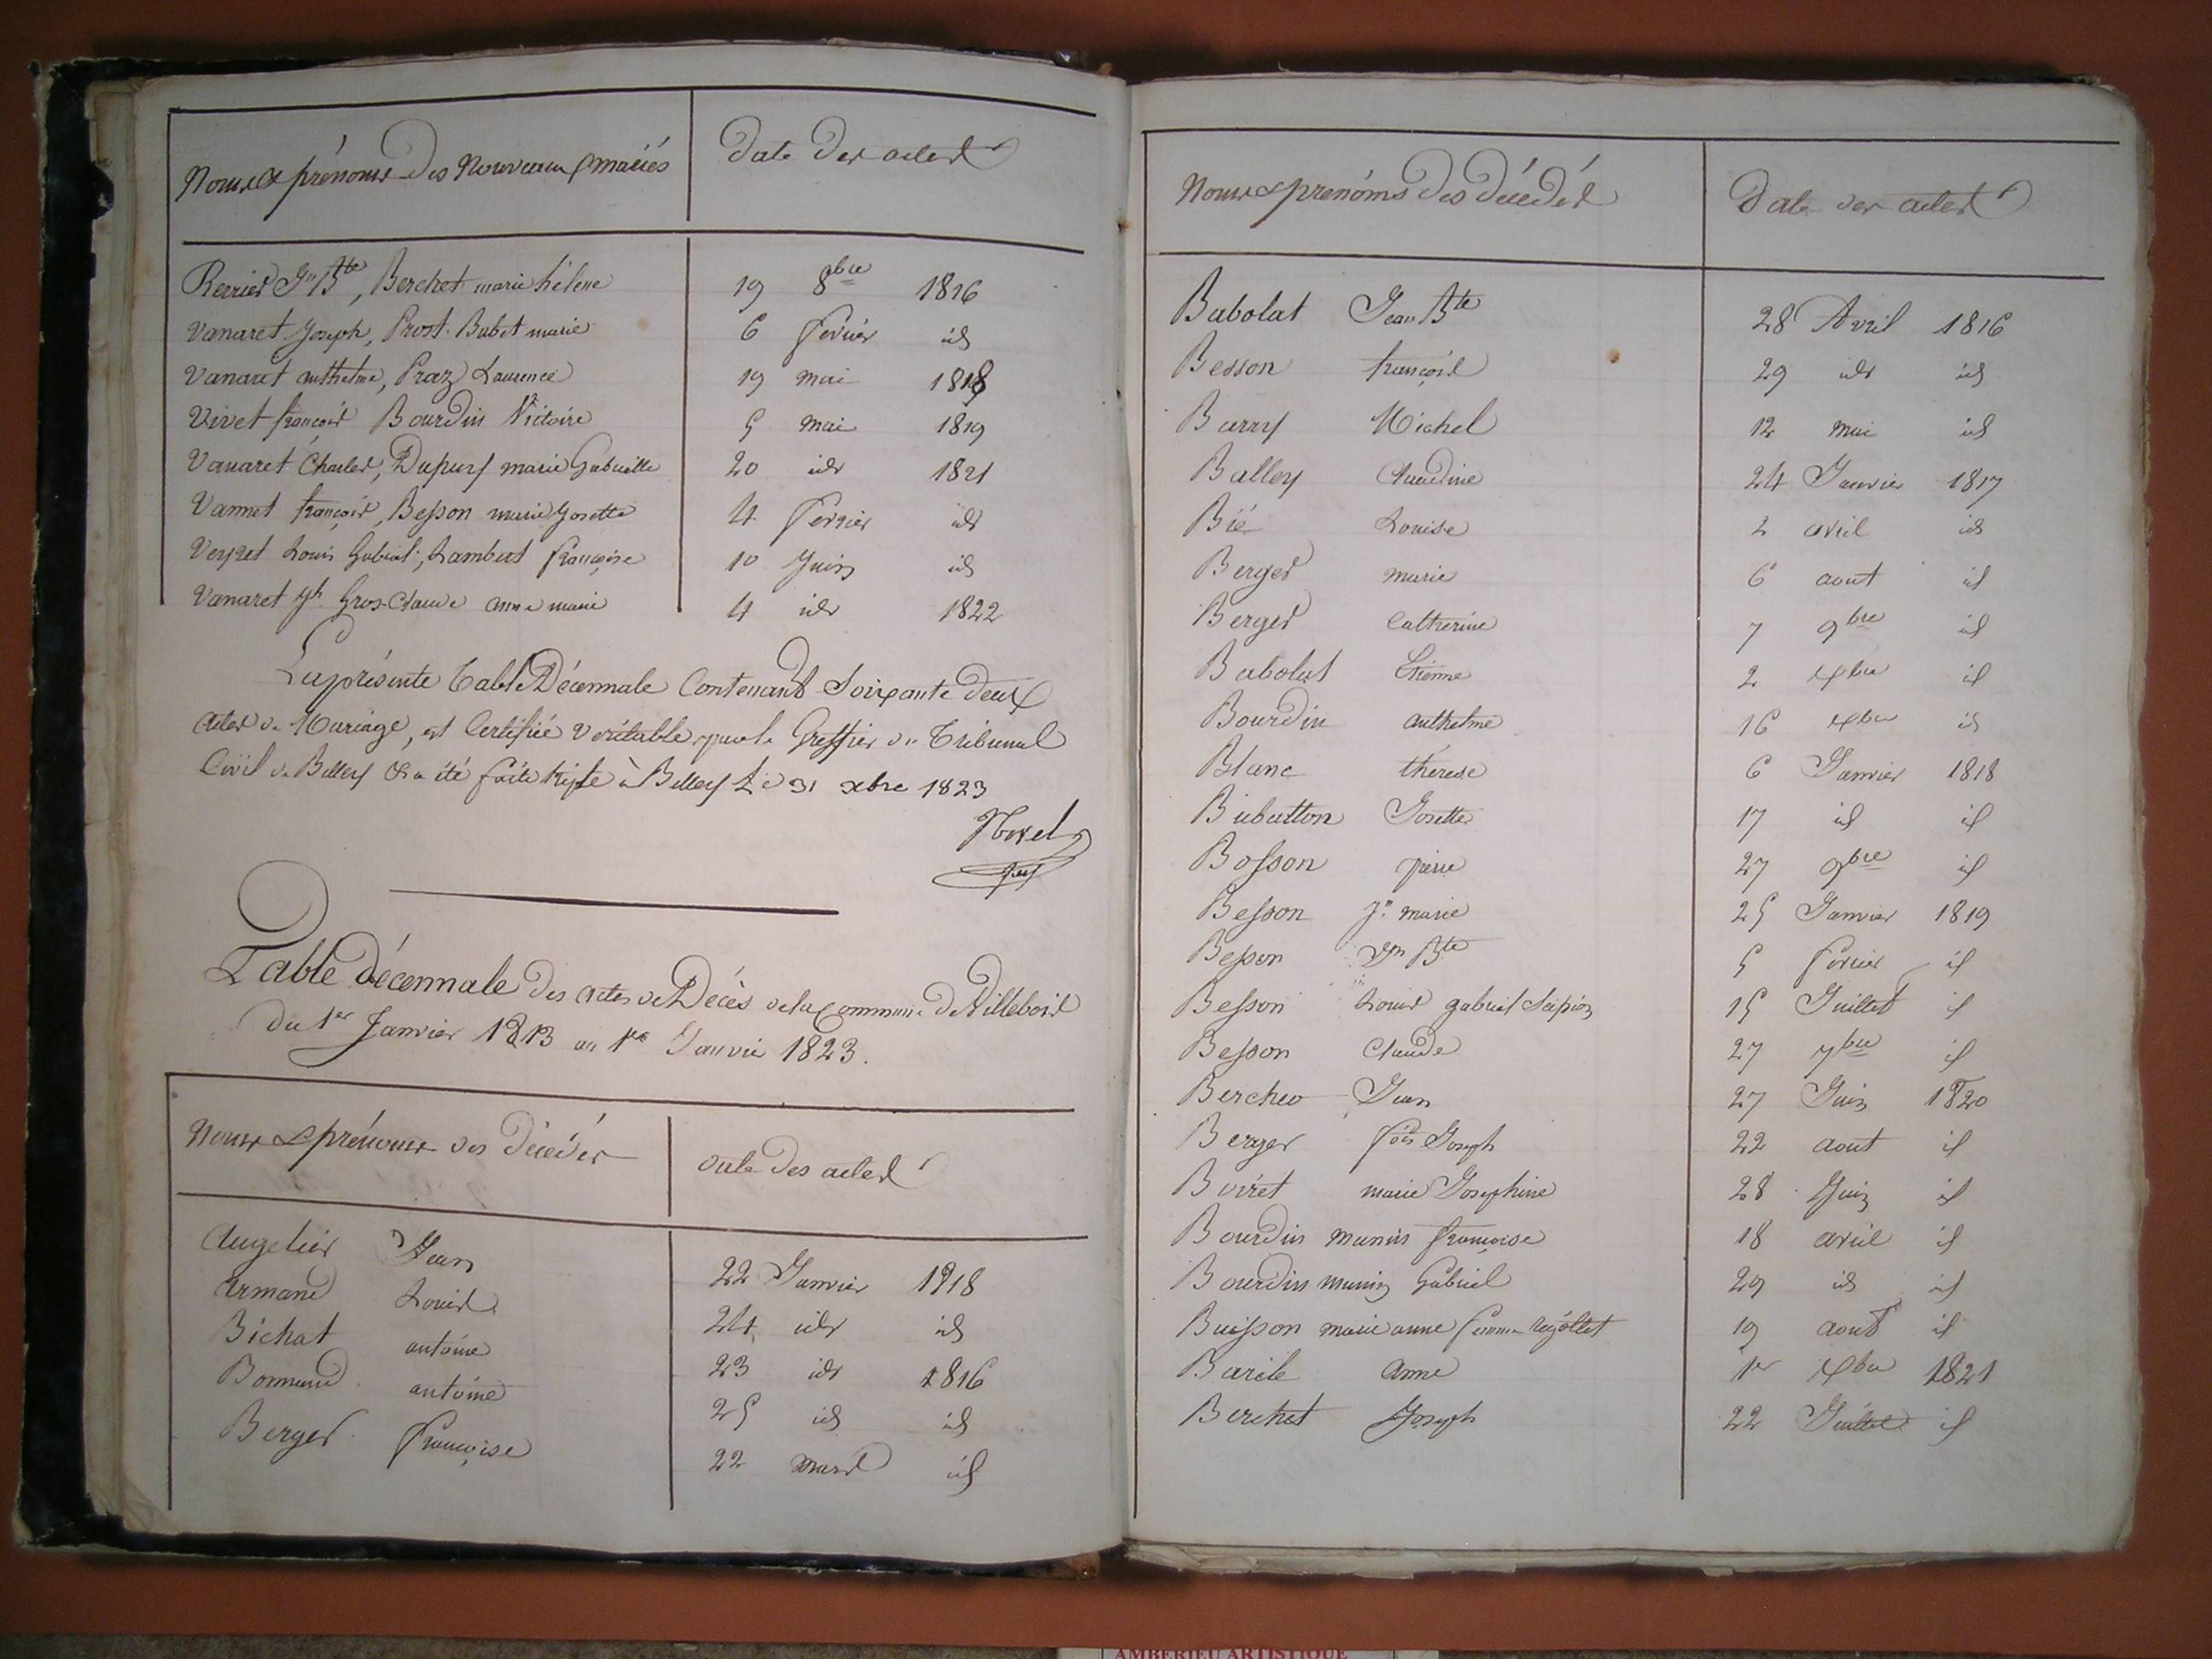 Noms & prénoms des Nouveaux mariés
Date des actes
Perrier Jn Bte, Berchet marie hélène 19 8bre 1816
Vanaret Joseph, Prost Babet marie 6 fevrier id
Vanaret anthelme, Praz Laurence 19 mai 1818
Vivet françois Bourdin Victoire 5 mai 1819
Vanaret Charles, Dupuy marie Gabrielle 20 idr 1821
Vannet françois, Besson marie Josette 4 fevrier idr
Veyret Louis Gabriel, Lambert françoise 10 Juin id
Vanaret Jh Gros-Claude anne marie 4 idr 1822
La présente Table Décennale Contenant Soixante deux
actes de Mariage, est Certifiée Véritable par le Greffier du Tribunal
Civil de Belley & a été faite triple à Belley Le 31 xbre 1823
Table décennale des actes de Décès de la Commune de Villebois
du 1er Janvier 1813 au 1er Janvier 1823.
Noms & prénoms des décédés
date des actes
Augelier Jean 22 Janvier 1818
Armand Louis 24 idr id
Bichat antoine 23 idr 1816
Bonnand antoine 25 id id
Berger françoise 22 mars id
Noms & prenoms des décédés
Date des actes
Babolat Jean Bte 28 Avril 1816
Besson françois 29 idr id
Barry Michel 12 mai id
Balley Claudine 24 Janvier 1817
Bié Louise 2 avril id
Berger marie 6 aout id
Berger Catherine 7 9bre id
Babolat Etienne 2 xbre id
Bourdin anthelme 16 xbre id
Blanc thérese 6 Janvier 1818
Biabatton Josette 17 id id
Bosson pierre 27 9bre id
Besson Jn marie 25 Janvier 1819
Besson Jn Bte 5 fevrier id
Besson Louis gabriel Scipion 15 Juillet id
Besson Claude 27 7bre id
Berchet Jean 27 Juin 1820
Berger fois Joseph 22 aout id
Boiret marie Josephine 28 Juin id
Bourdin manin françoise 18 avril id
Bourdin manin Gabriel 29 id id
Buisson marie anne femme 19 aout id
Barile Anne 1er xbre 1821
Berchet Joseph 22 Juillet id
AMBERIEU ARTISTIQUE